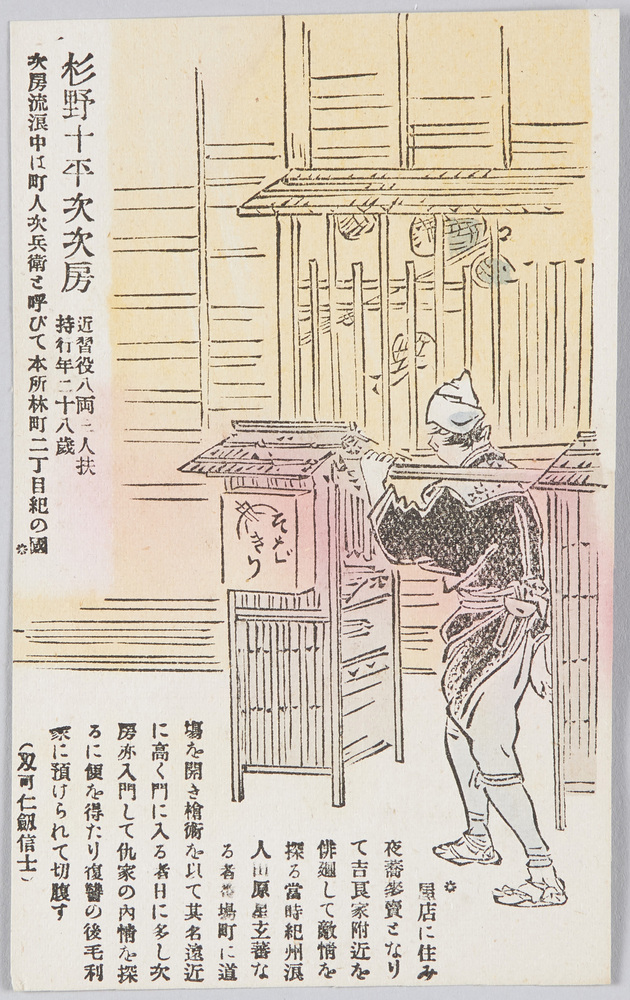 杉野十平次次房
近習役八両三人扶
持行年二十八歳
次房流浪中は町人次兵衛と呼びて本所林町二丁目紀の國※
そば
きり
※屋店に住み
夜蕎麥賣となり
て吉良家附近を
俳廻して敵情を
探る當時紀州浪
人原星玄蕃な
る者番場町に道
場を開き槍術を以て其名遠近
に高く門に入る者日に多し次
房亦入門して仇家の內情を探
るに便を得たり復讐の後毛利
家に預けられて切腹す
(刄可仁劔信士)